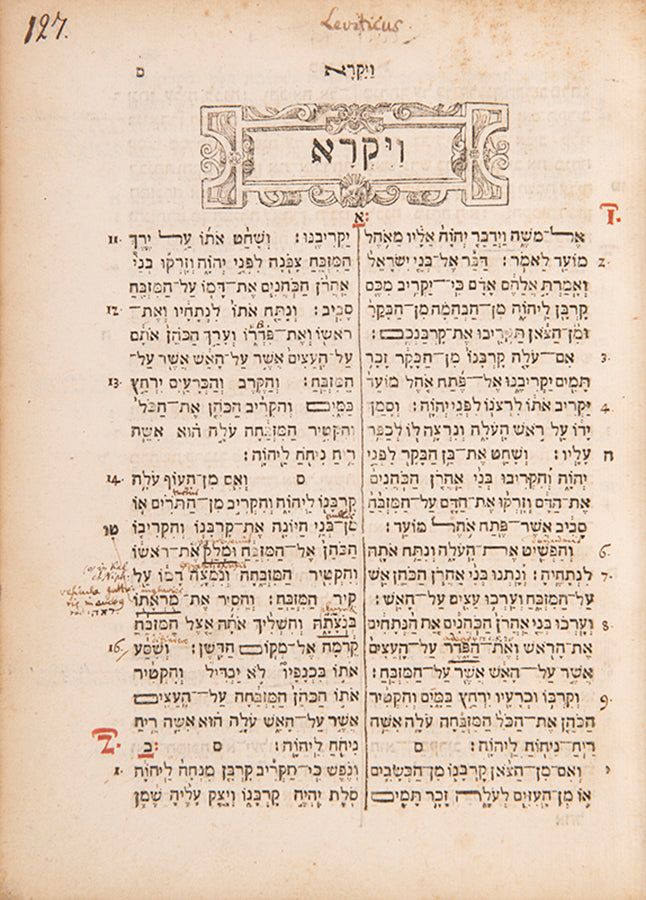 127.
Leviticus.
וַיִּקְרָא
ם
וַיִּקְרָא
א:
1.
אֶל־מֹשֶׁה וַיְדַבֵּר יְהוָֹה אֵלָיו מֵאֹהֶל
2. מוֹעֵד לֵאמֹר: דַּבֵּר אֶל־בְּנֵי יִשְׂרָאֵל
וְאָמַרְתָּ אֲלֵהֶם אָדָם כִּי־יַקְרִיב מִכֶּם
קָרְבָּן לַיהוָֹה מִן־הַבְּהֵמָה מִן־הַבָּקָר
וּמִן־הַצֹּאן תַּקְרִיבוּ אֶת־קָרְבַּנְכֶם:
3. אִם־עֹלָה קָרְבָּנוֹ מִן־הַבָּקָר זָכָר
תָּמִים יַקְרִיבֶנּוּ אֶל־פֶּתַח אֹהֶל מוֹעֵד
4. יַקְרִיב אֹתוֹ לִרְצֹנוֹ לִפְנֵי יְהוָֹה: וְסָמַךְ
יָדוֹ עַל רֹאשׁ הָעֹלָה וְנִרְצָה לוֹ לְכַפֵּר
ה עָלָיו: וְשָׁחַט אֶת־בֶּן הַבָּקָר לִפְנֵי
יְהוָֹה וְהִקְרִיבוּ בְּנֵי אַהֲרֹן הַכֹּהֲנִים
אֶת־הַדָּם וְזָרְקוּ אֶת־הַדָּם עַל־הַמִּזְבֵּחַ
סָבִיב אֲשֶׁר־פֶּתַח אֹהֶל מוֹעֵד:
6. וְהִפְשִׁיט אֶת־הָעֹלָה וְנִתַּח אֹתָהּ
7. לִנְתָחֶיהָ: וְנָתְנוּ בְּנֵי אַהֲרֹן הַכֹּהֵן אֵשׁ
עַל־הַמִּזְבֵּחַ וְעָרְכוּ עֵצִים עַל־הָאֵשׁ:
8. וְעָרְכוּ בְּנֵי אַהֲרֹן הַכֹּהֲנִים אֵת הַנְּתָחִים
אֶת־הָרֹאשׁ וְאֶת־הַפָּדֶר עַל־הָעֵצִים
אֲשֶׁר עַל־הָאֵשׁ אֲשֶׁר עַל־הַמִּזְבֵּחַ:
9. וְקִרְבּוֹ וּכְרָעָיו יִרְחַץ בַּמָּיִם וְהִקְטִיר
הַכֹּהֵן אֶת־הַכֹּל הַמִּזְבֵּחָה עֹלָה אִשֵּׁה
רֵיחַ־נִיחוֹחַ לַיהוָֹה: ם
י וְאִם־מִן־הַצֹּאן קָרְבָּנוֹ מִן־הַכְּשָׂבִים
אוֹ מִן־הָעִזִּים לְעֹלָה זָכָר תָּמִים
11. יַקְרִיבֶנּוּ: וְשָׁחַט אֹתוֹ עַל יֶרֶךְ
הַמִּזְבֵּחַ צָפֹנָה לִפְנֵי יְהוָֹה וְזָרְקוּ בְּנֵי
אַהֲרֹן הַכֹּהֲנִים אֶת־דָּמוֹ עַל־הַמִּזְבֵּחַ
12. סָבִיב: וְנִתַּח אֹתוֹ לִנְתָחָיו וְאֶת־
רֹאשׁוֹ וְאֶת־פִּדְרוֹ וְעָרַךְ הַכֹּהֵן אֹתָם
עַל־הָעֵצִים אֲשֶׁר עַל־הָאֵשׁ אֲשֶׁר עַל־
13. הַמִּזְבֵּחַ: וְהַקֶּרֶב וְהַכְּרָעַיִם יִרְחַץ
בַּמָּיִם וְהִקְרִיב הַכֹּהֵן אֶת־הַכֹּל
וְהִקְטִיר הַמִּזְבֵּחָה עֹלָה הוּא אִשֵּׁה
רֵיחַ נִיחֹחַ לַיהוָֹה:
14. ם וְאִם מִן־הָעוֹף עֹלָה
קָרְבָּנוֹ לַיהוָֹה וְהִקְרִיב מִן־הַתֹּרִים אוֹ
טו מִן־בְּנֵי הַיּוֹנָה אֶת־קָרְבָּנוֹ: וְהִקְרִיבוֹ
הַכֹּהֵן אֶל־הַמִּזְבֵּחַ וּמָלַק אֶת־רֹאשׁוֹ
וְהִקְטִיר הַמִּזְבֵּחָה וְנִמְצָה דָמוֹ עַל
קִיר הַמִּזְבֵּחַ: וְהֵסִיר אֶת־מֻרְאָתוֹ
בְּנֹצָתָהּ וְהִשְׁלִיךְ אֹתָהּ אֵצֶל הַמִּזְבֵּחַ
16. קֵדְמָה אֶל־מְקוֹם הַדָּשֶׁן: וְשִׁסַּע
אֹתוֹ בִכְנָפָיו לֹא יַבְדִּיל וְהִקְטִיר
אֹתוֹ הַכֹּהֵן הַמִּזְבֵּחָה עַל־הָעֵצִים
אֲשֶׁר עַל־הָאֵשׁ עֹלָה הוּא אִשֵּׁה רֵיחַ
נִיחֹחַ לַיהוָֹה: ם
2. ב:
1. וְנֶפֶשׁ כִּי־תַקְרִיב קָרְבַּן מִנְחָה לַיהוָֹה
סֹלֶת יִהְיֶה קָרְבָּנוֹ וְיָצַק עָלֶיהָ שֶׁמֶן